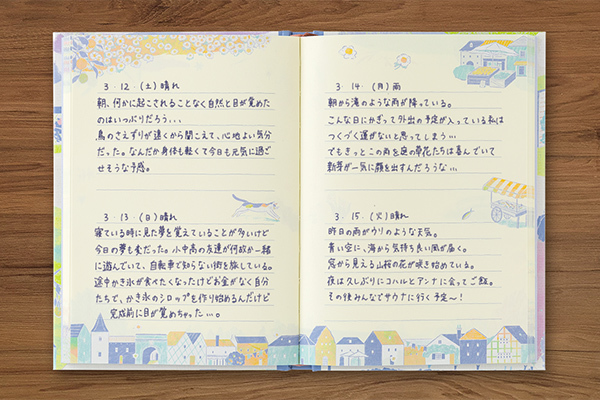 3・12・(土)晴れ
朝、何かに起こされることなく自然と目が覚めた
のはいつぶりだろう...
鳥のさえずりが遠くから聞こえて、心地よい気分
だった。なんだか身体も軽くて今日も元気に過ご
せそうな予感。
3・13・(日)晴れ
寝ている時に見た夢を覚えていることが多いけど
今日の夢も変だった。小中高の友達が何故か一緒
に遊んでいて、自転車で知らない街を旅している。
途中かき氷が食べたくなったけどお金がなく自分
たちで、かき氷のシロップも作り始めるんだけど
完成前に目が覚めちゃった...。
3・14・(月)雨
朝から滝のような雨が降っている。
こんな日にかぎって外出の予定が入っている私は
つくづく運がないと思ってしまう...
でもきっとこの雨を庭の草花たちは喜んでいて
新芽が一気に顔を出すんだろうな...
3・15・(火)晴れ
昨日の雨がウソのような天気。
青い空に、海から気持ち良い風が届く。
窓から見える山桜の花が咲き始めている。
夜は久しぶりにコハルとアンナに会ってご飯。
その後みんなでサウナに行く予定〜!